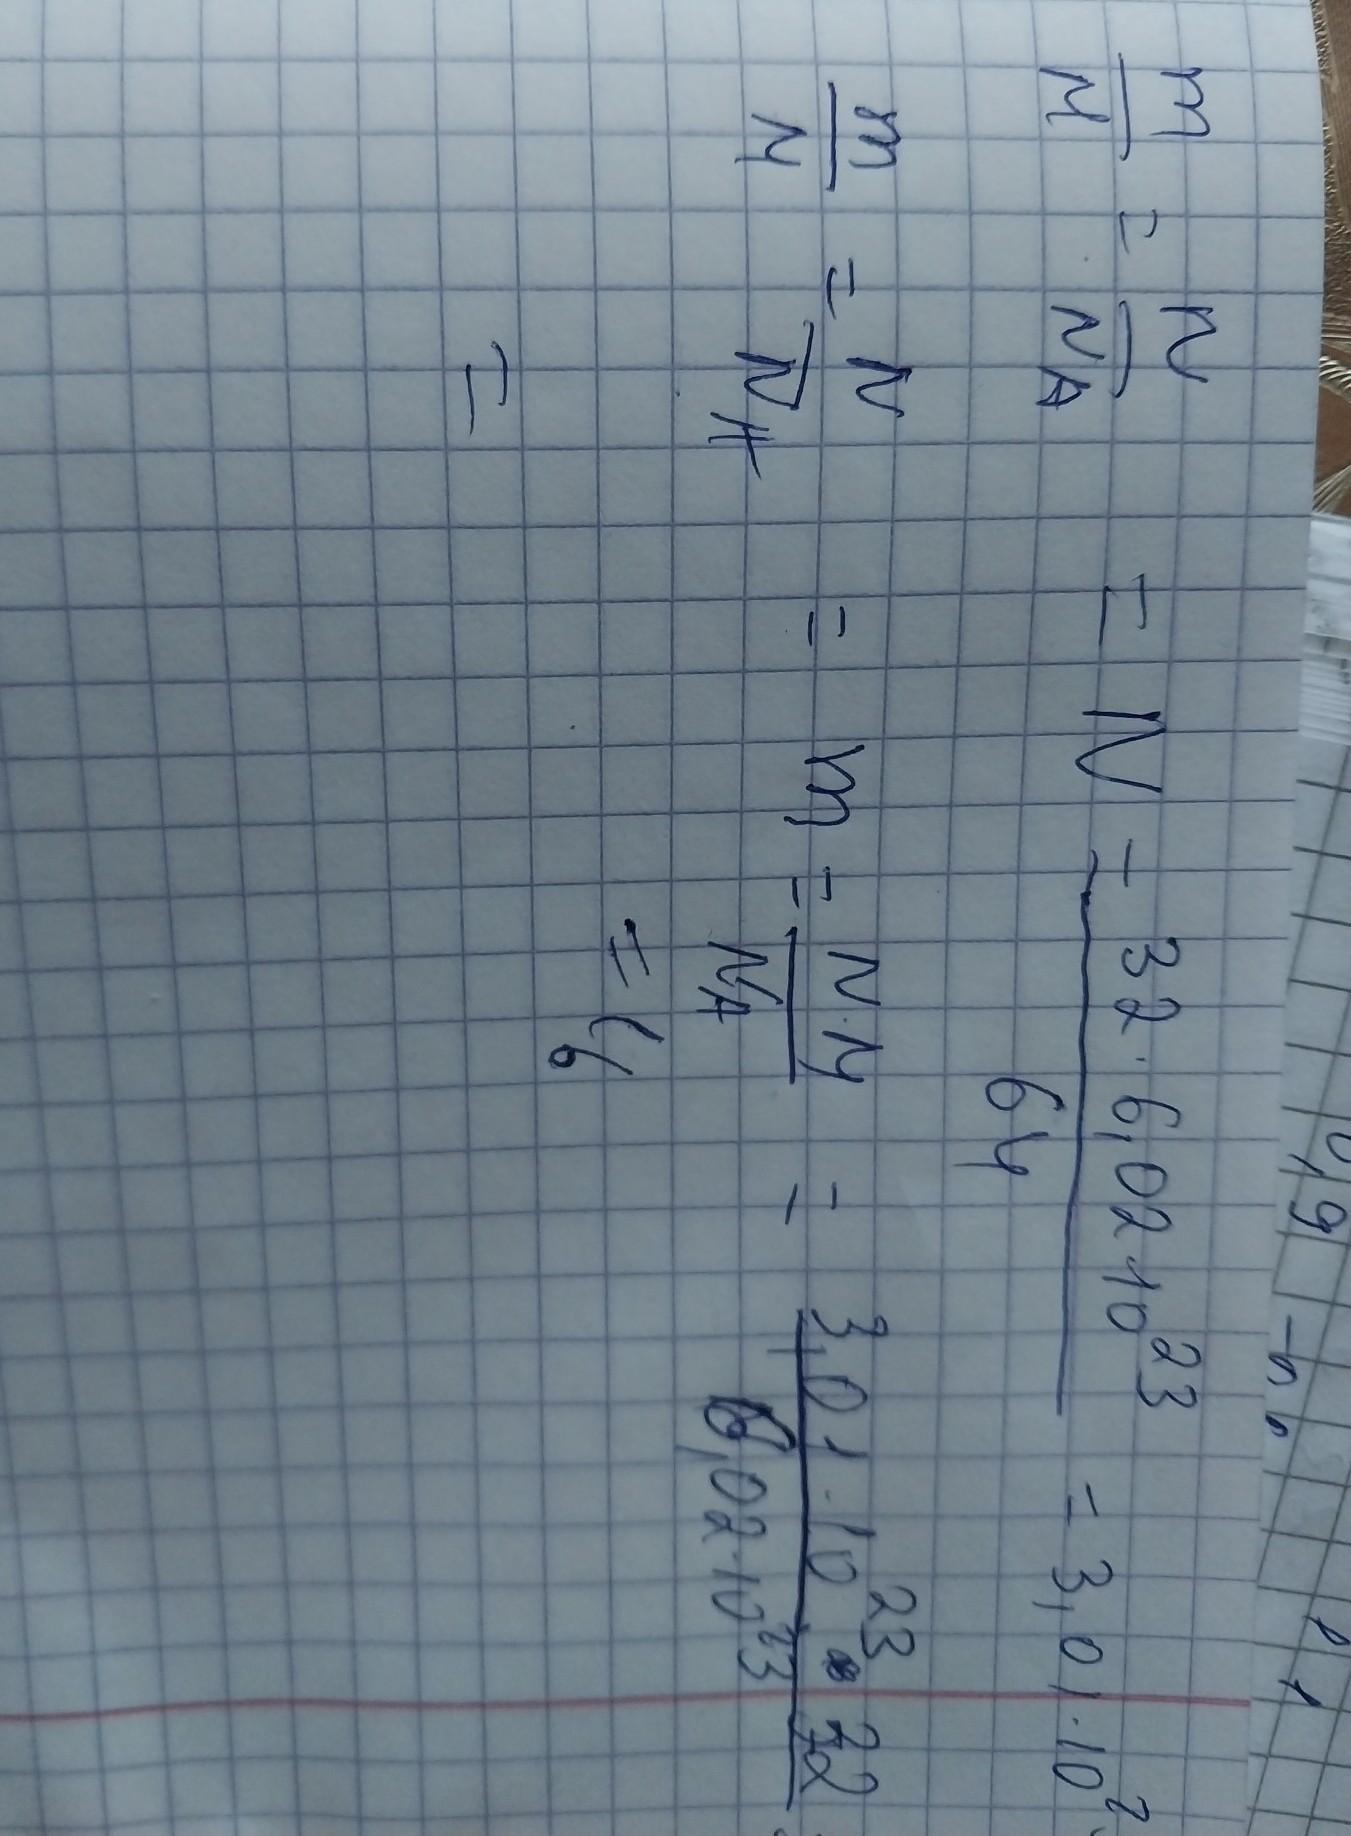 m/M = N/NA = N = 32 · 6,02 · 10²³ / 64 = 3,01 · 10²
m/M = N/NA = m = N · M / NA = 3,01 · 10²³ · 32 / 6,02 · 10²³
= 16
=
0,9